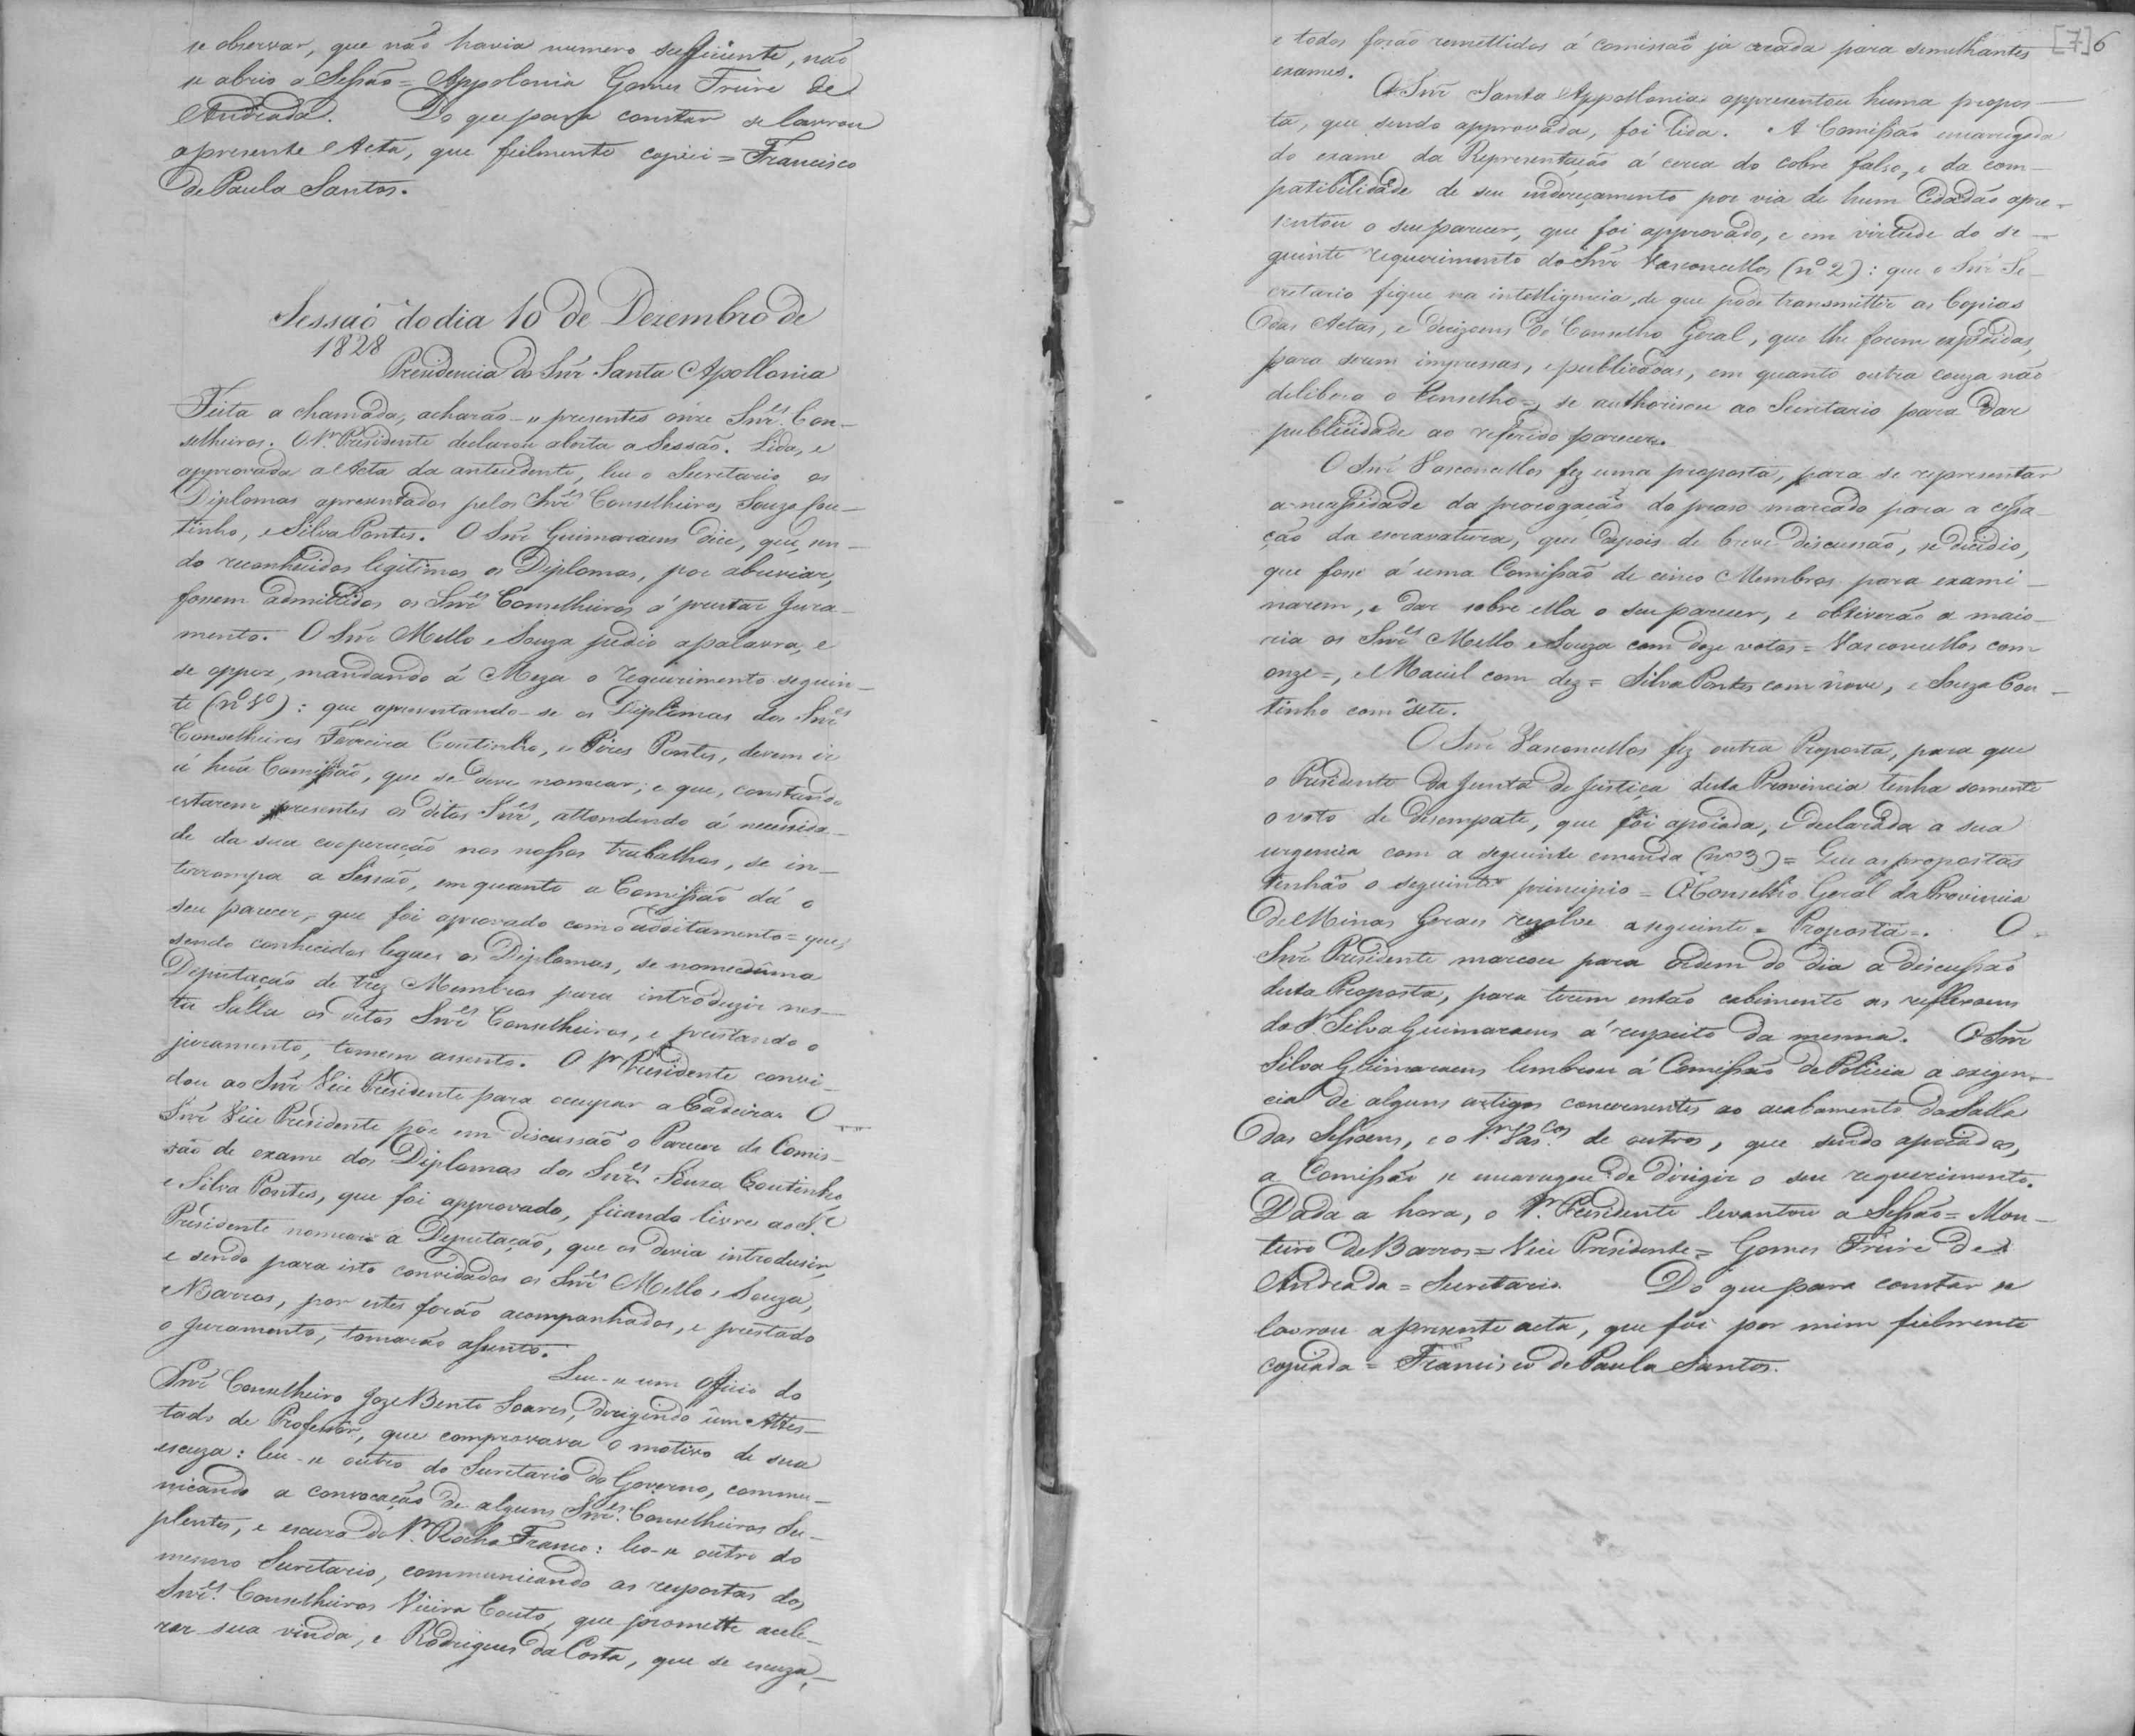 se observar, que não havia numero sufficiente, não
se abrio a Sessão = Appolonia Gomes Freire de
Andrada. Do que para constar se lavrou
apresente Acta, que fielmente copiei = Francisco
de Paula Santos.
Sessaõ do dia 10 de Dezembro de
1828
Presidencia do Snr̃ Santa Apollonia
Feita a chamada, acharão-se presentes onze Snr̃es Con-
selheiros. O Sr. Presidente declarou aberta a Sessão. Lida, e
approvada a Acta da antecedente, leu o Secretario os
Diplomas apresentados pelos Snr̃es Conselheiros Souza Cou-
tinho, e Silva Pontes. O Snr̃ Guimaraens dice, que, sen-
do reconhecidos legitimos os Diplomas, por abreviar,
fossem admittidos os Snr̃es Conselheiros á prestar Jura-
mento. O Snr̃ Mello e Souza pedio apalavra, e
se oppoz, mandando á Meza o requerimento seguin-
te (nº 1º) : que apresentando-se os Diplomas dos Snr̃es
Conselheiros Ferreira Coutinho, e Pires Pontes, devem ir
á huã Comissão, que se deve nomear; e que, constando
estarem presentes os ditos Snr̃es, attendendo á necessida-
de da sua cooperação nos nossos trabalhos, se in-
terrompa a Sessão, em quanto a Comissão dá o
seu parecer, que foi aprovado com o additamento = que,
sendo conhecidos legaes os Diplomas, se nomeie uma
Deputação de trez Membros para introduzir nes-
ta Salla os ditos Snr̃es Conselheiros, e prestando o
juramento, tomem assento. O Sr Presidente convi-
dou ao Snr̃ Vice Presidente para occupar a Cadeira. O
Snr̃ Vice Presidente poz em discussão o Parecer da Comis-
são de exame dos Diplomas dos Snr̃es Souza Coutinho,
e Silva Pontes, que foi approvado, ficando livre ao Vice
Presidente nomear a Deputação, que os devia introdusir,
e sendo para isto convidados os Snr̃es Mello e Souza,
e Barros, por estes forão acompanhados, e prestado
o juramento, tomarão assento.
Leu-se um Officio do
Snr̃ Conselheiro Joze Bento Soares, dirigindo um Attes-
tado de Professor, que comprovava o motivo de sua
escuza: leu-se outro do Secretario do Governo, commu-
nicando a convocação de alguns Snr̃es Conselheiros Su-
plentes, e escuza do Sr. Rocha Franco: leo-se outro do
mesmo Secretario, communicando as respostas dos
Snr̃es Conselheiros Vieira Couto, que promette acele-
rar sua vinda, e Rodrigues da Costa, que se escuza,
[7] 6
e todos forão remettidos á comissaõ já creada para semelhantes
exames.
O Snr̃ Santa Appollonia appresentou huma propos-
ta, que sendo approvada, foi lida. A Comissão encarregada
do exame da Representação á cerca do cobre falso, e da com-
patibilidade de seu endereçamento por via de hum Cidadão apre-
sentou o seu parecer, que foi approvado, e em virtude do se-
guinte requerimento do Snr̃ Vasconcellos (nº 2) : que o Snr̃ Se-
cretario fique na intelligencia, de que póde transmittir as Copias
das Actas, e decizoens do Conselho Geral, que lhe forem expedidas,
para serem impressas, e publicadas, em quanto outra couza não
delibera o Conselho =, se authorisou ao Secretario para dar
publicidade ao referido parecer.
O Snr̃ Vasconcellos fez uma proposta, para se representar
a necessidade da prorogação do praso marcado para a cessa-
ção da escravatura, que depois de breve discussão, se dicidio,
que fosse á uma Comissão de cinco Membros para exami-
narem, e dar sobre ella o seu parecer, e obtiverão a maio-
ria os Snr̃es Mello e Souza com doze votos = Vasconcellos com
onze =, e Maciel com dez = Silva Pontes com nove, e Souza Cou-
tinho com sete.
O Snr̃ Vasconcellos fez outra Proposta, para que
o Presidente da Junta de Justiça desta Provincia tenha somente
o voto de desempate, que foi apoiada, e declarada a sua
urgencia com a seguinte emenda (nº 3) = Que as propostas
tenhão o seguinte principio = O Conselho Geral da Provincia
de Minas Geraes resolve a seguinte = Proposta =. O
Snr̃ Presidente marcou para ordem do dia a discussão
desta Proposta, para terem então cabimento as reflexoens
do Sr. Silva Guimaraens á respeito da mesma. O Snr̃
Silva Guimaraens lembrou á Comissão de Policia a exigen-
cia de alguns artigos concernentes ao acabamento da Salla
das Sessoens, e o Sr. Vas.cos de outros, que sendo apoiados,
a Comissão se encarregou de dirigir o seu requerimento.
Dada a hora, o Sr. Presidente levantou a Sessão = Mon-
teiro de Barros = Vice Presidente = Gomes Freire de
Andrada = Secretario. Do que para constar se
lavrou apresente acta, que foi por mim fielmente
copiada = Francisco de Paula Santos.